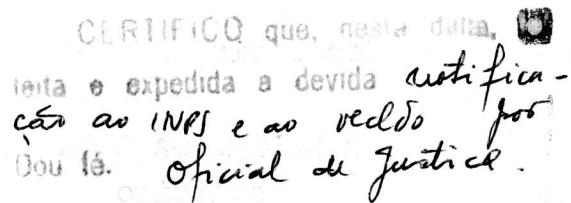 CERTIFICO que, nesta data,
feita e expedida a devida notifica-
ção ao INPS e ao recldo por
Dou fé. Oficial de Justiça.